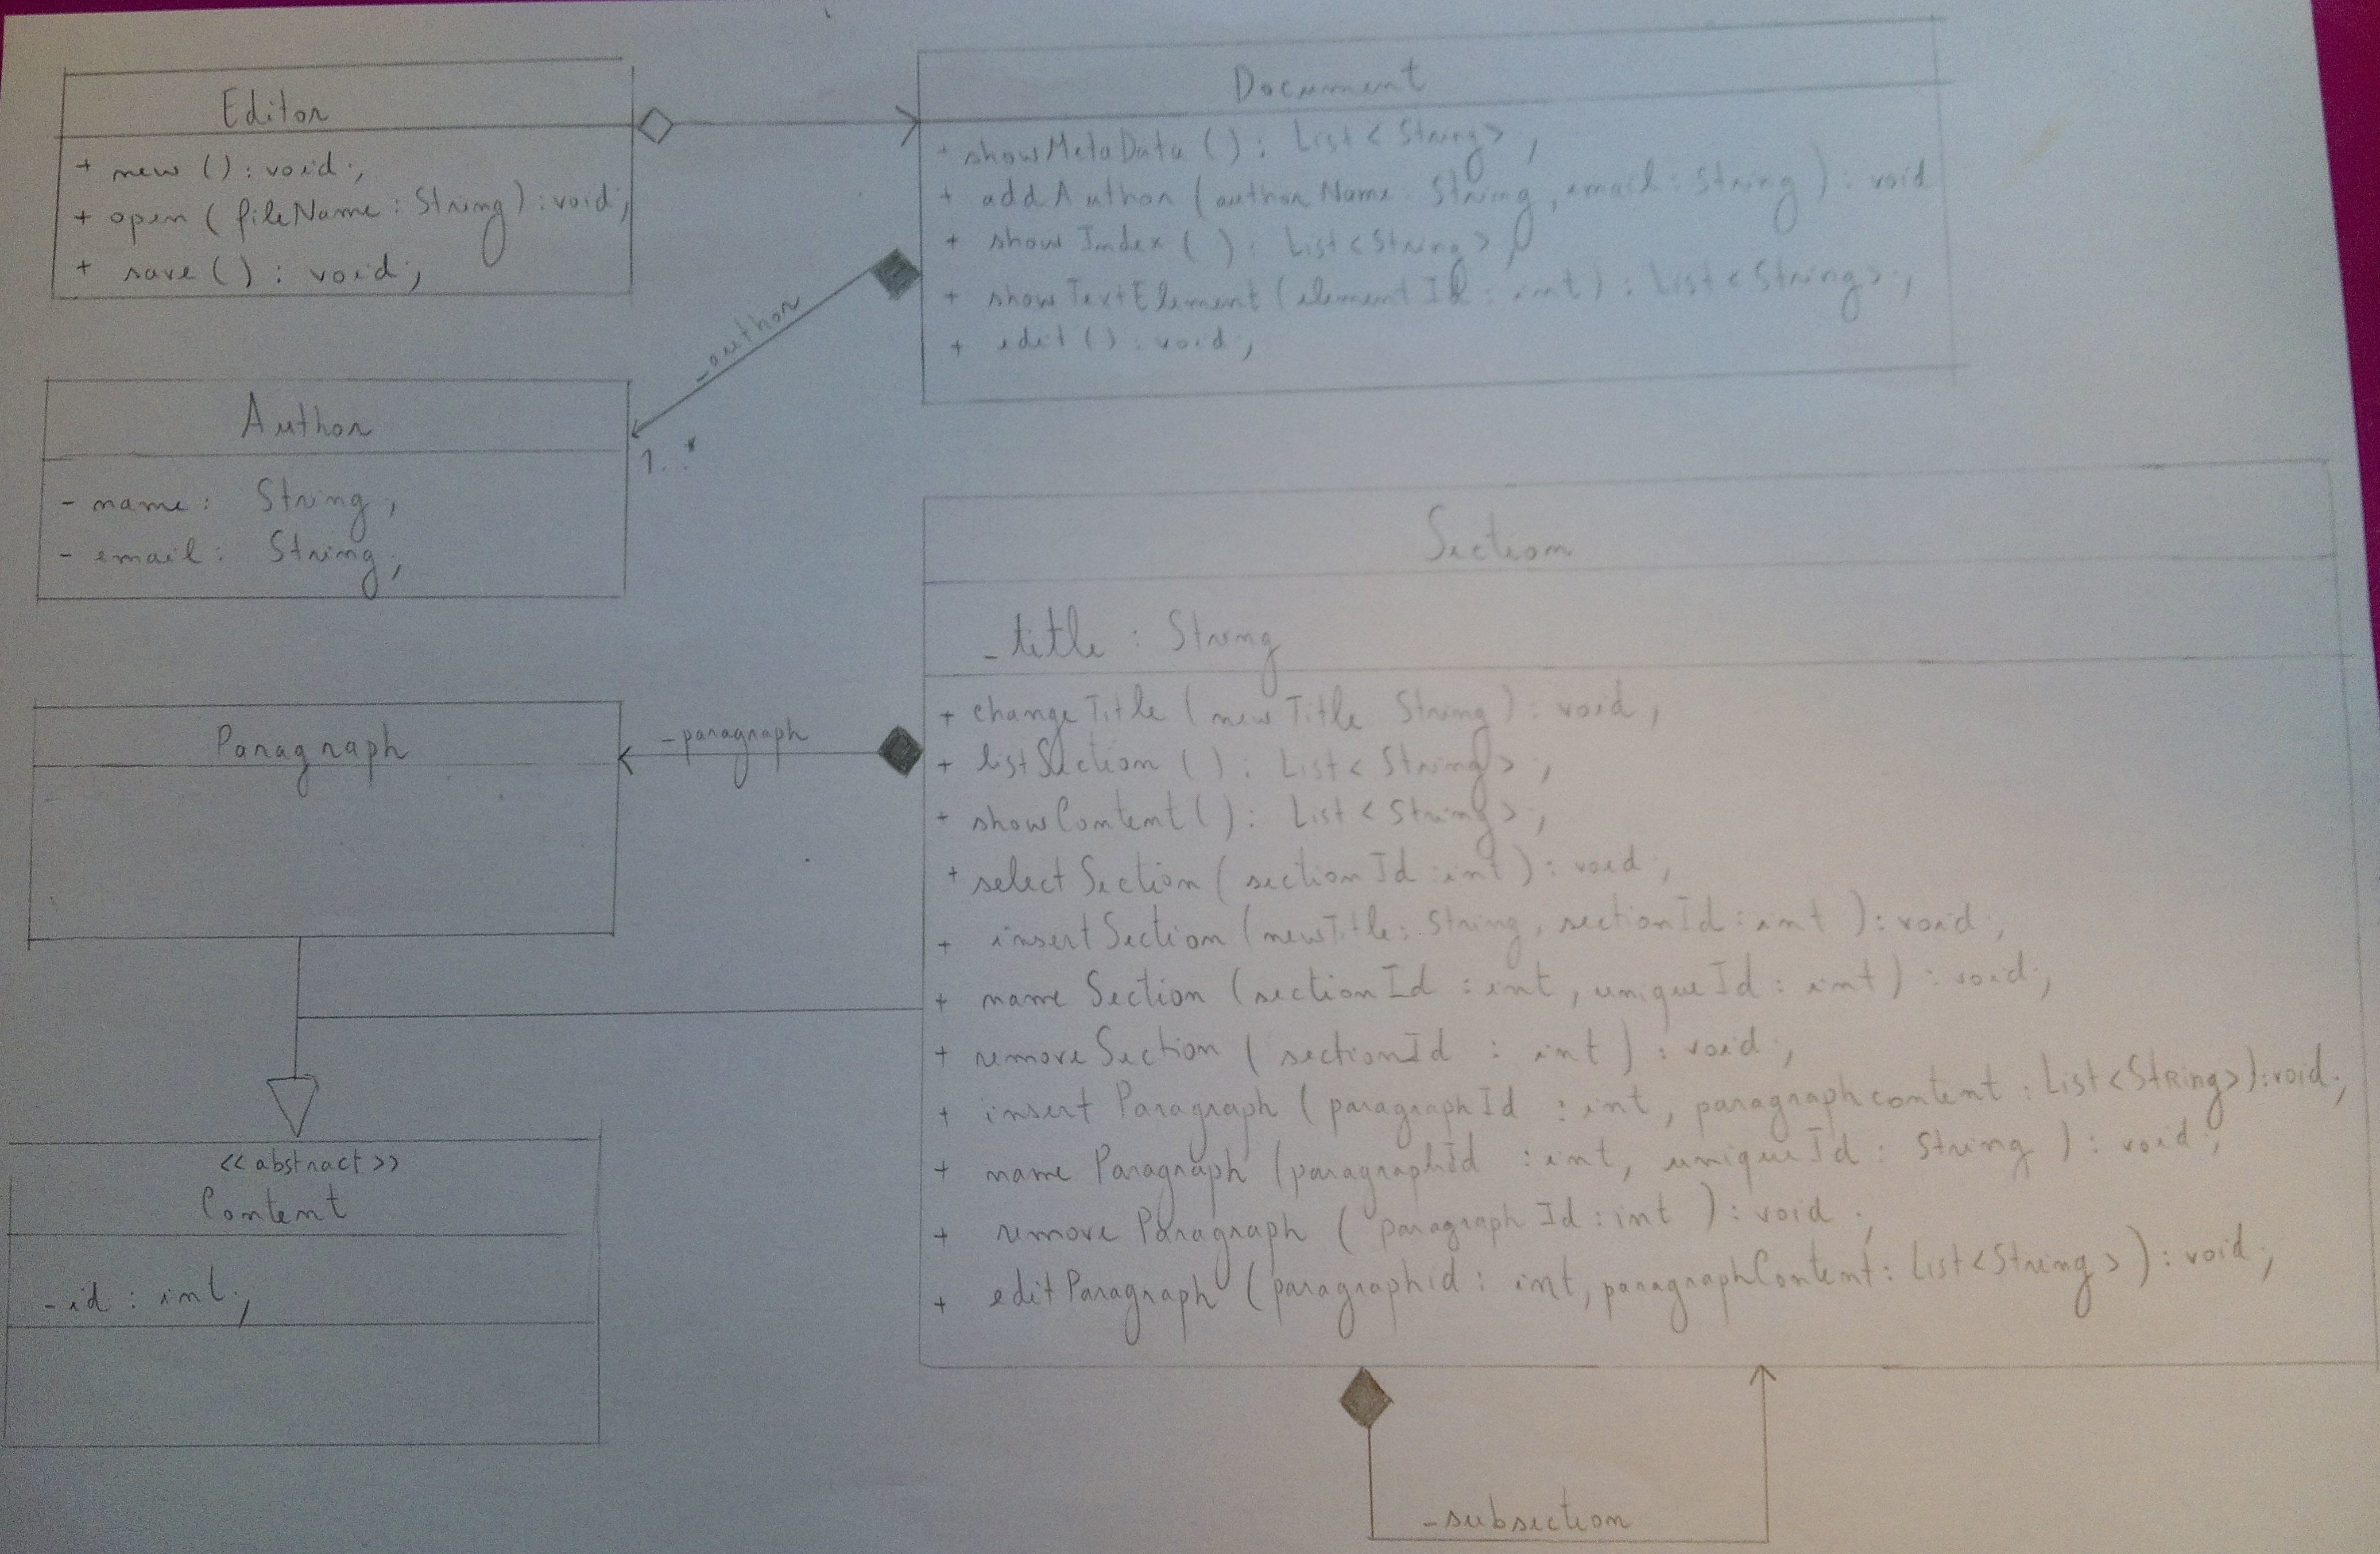 Editor
+ new () : void ;
+ open ( fileName : String ) : void ;
+ save ( ) : void ;
Document
+ showMetaData ( ) : List < String > ;
+ addAuthor ( authorName : String , email : String ) : void
+ showIndex ( ) : List < String > ;
+ showTextElement ( elementId : int ) : List < String > ;
+ edit ( ) : void ;
- author
1..*
Author
- name : String ;
- email : String ;
Section
- title : String
+ changeTitle ( newTitle String ) : void ;
+ listSection ( ) : List < String > ;
+ showContent ( ) : List < String > ;
+ selectSection ( sectionId : int ) : void ;
+ insertSection ( newTitle : String , sectionId : int ) : void ;
+ nameSection ( sectionId : int , uniqueId : int ) : void ;
+ removeSection ( sectionId : int ) : void ;
+ insertParagraph ( paragraphId : int , paragraphcontent : List < String > ) : void ;
+ nameParagraph ( paragraphId : int , uniqueId : String ) : void ;
+ removeParagraph ( paragraphId : int ) : void ;
+ editParagraph ( paragraphid : int , paragraphContent : List < String > ) : void ;
- paragraph
Paragraph
<< abstract >>
Content
- id : int ;
- subsection